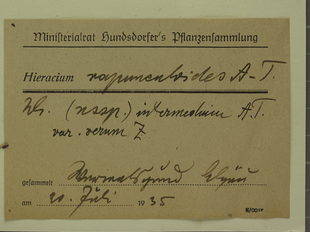 Ministerialrat Hundsdorfer's Pflanzensammlung
Hieracium rapunculoides A-T.
(ussp.) intermedium A.T.
var. verum Z
gesammelt
am 20. Juli 1935